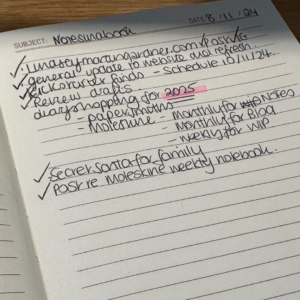 SUBJECT: Notesinabook DATE: 8/11/24
✓ lindseymartingardner.com/
✓ general update to website and refresh.
✓ Kickstarter finds - Schedule 10/11/24.
✓ Review drafts
diary shopping for 2025
- papersmiths
- Moleskine - Monthly for Notes
- Monthly for Blog
- Weekly for WIP
✓ Secret Santa for family
✓ Post re Moleskine weekly notebook.